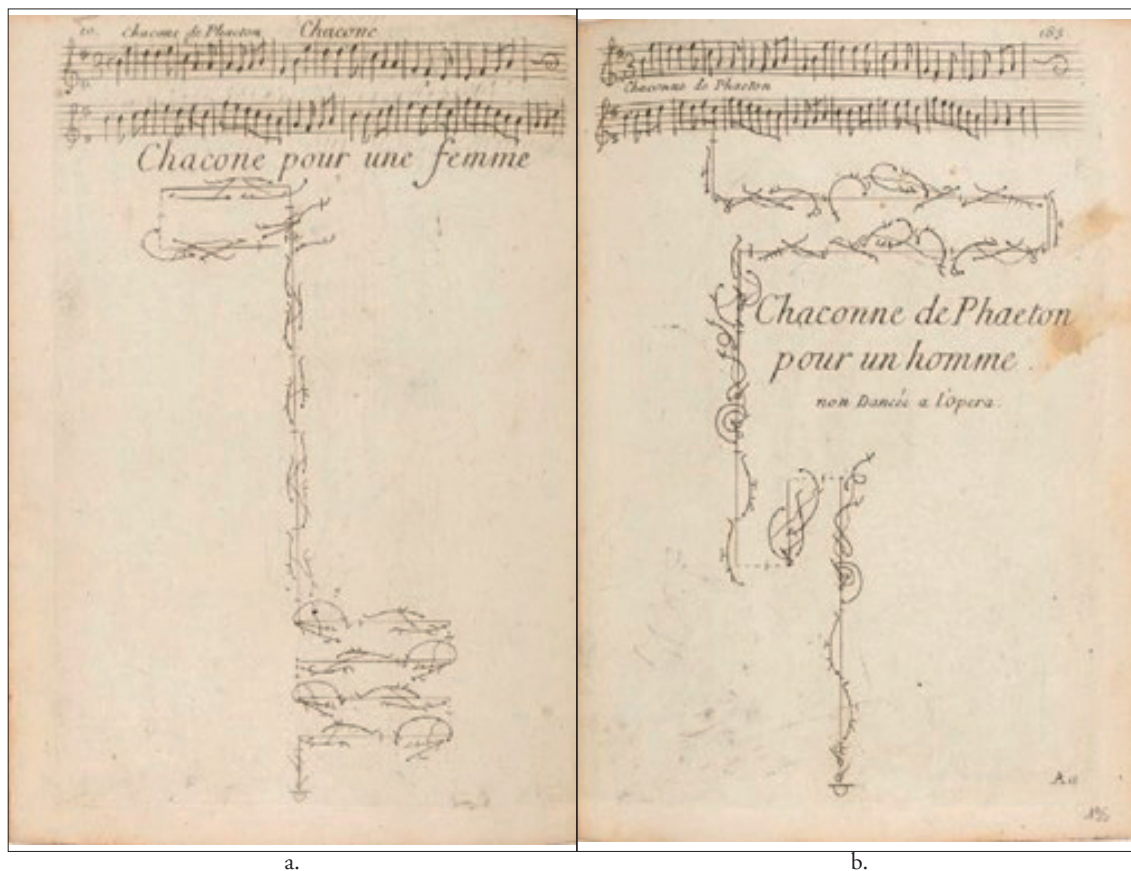 Chacone de Phaeton Chacone
Chacone pour une femme
a.
185
Chaconne de Phaeton
Chaconne de Phaeton
pour un homme
non Dancée a l'Opera.
b.